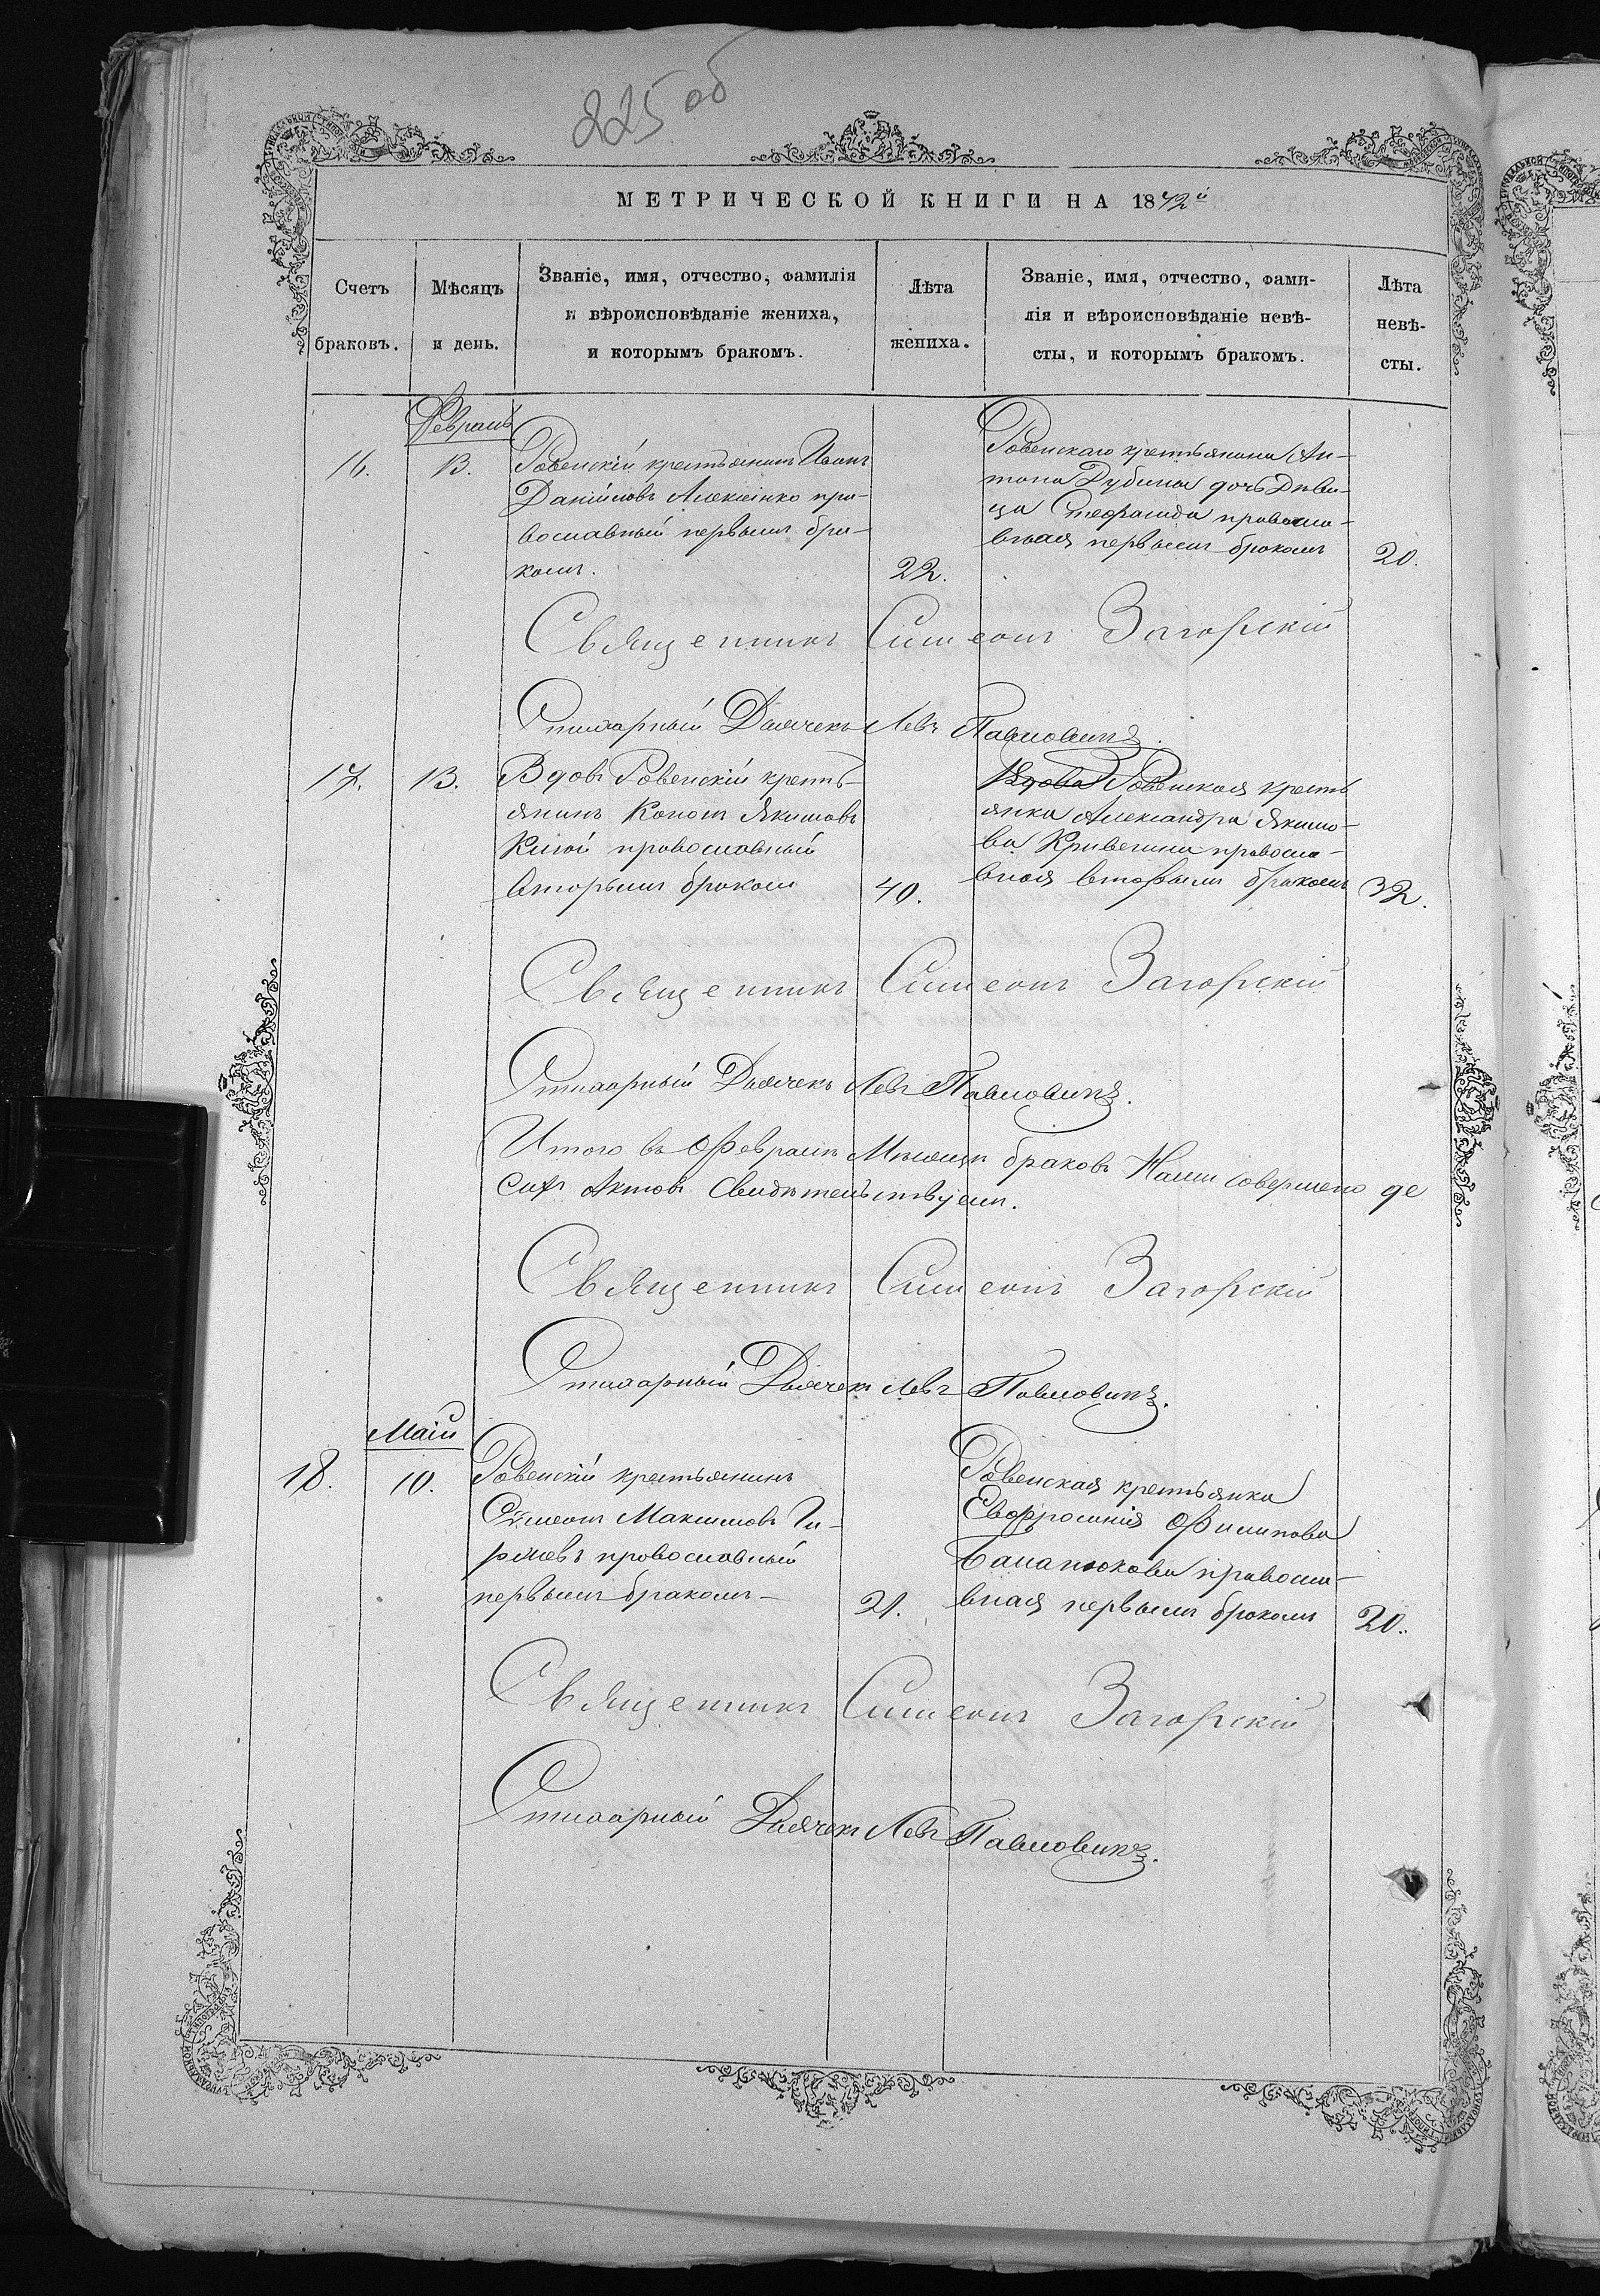 225 об
МЕТРИЧЕСКОЙ КНИГИ НА 1872й
Счетъ браковъ.
Мѣсяцъ и день.
Званіе, имя, отчество, фамилія
и вѣроисповѣданіе жениха,
и которымъ бракомъ.
Лѣта жениха.
Званіе, имя, отчество, фами-
лія и вѣроисповѣданіе невѣ-
сты, и которымъ бракомъ.
Лѣта невѣ-
сты.
Февраль
16.
13.
Ровенскій крестьянинъ Иванъ
Даніиловъ Алексіенко пра-
вославный первымъ бра-
комъ.
22.
Ровенскаго крестьянина Ан-
тона Дубины дочь Дѣви-
ца Стефанида правосла-
вная первымъ бракомъ
20.
Священникъ Симеонъ Загорскій
Стихарный Дьячекъ Левъ Павловичъ.
17.
13.
Вдовъ Ровенскій кресть-
янинъ Кононъ Якимовъ
православный
вторымъ бракомъ
40.
Вдова Ровенская кресть
янка Александра Якимо-
ва правосла-
вная вторымъ бракомъ
32.
Священникъ Симеонъ Загорскій
Стихарный Дьячекъ Левъ Павловичъ.
Итого въ Февралѣ Мѣсяцѣ браковъ Нами совершено де
сять Актовъ Свидѣтельствуемъ.
Священникъ Симеонъ Загорскій
Стихарный Дьячекъ Левъ Павловичъ.
Маій
18.
10.
Ровенскій крестьянинъ
Сѵмеонъ Максимовъ
православный
первымъ бракомъ—
21.
Ровенская крестьянка
Евфросинія Филипова
правосла-
вная первымъ бракомъ
20.
Священникъ Симеонъ Загорскій
Стихарный Дьячекъ Левъ Павловичъ.